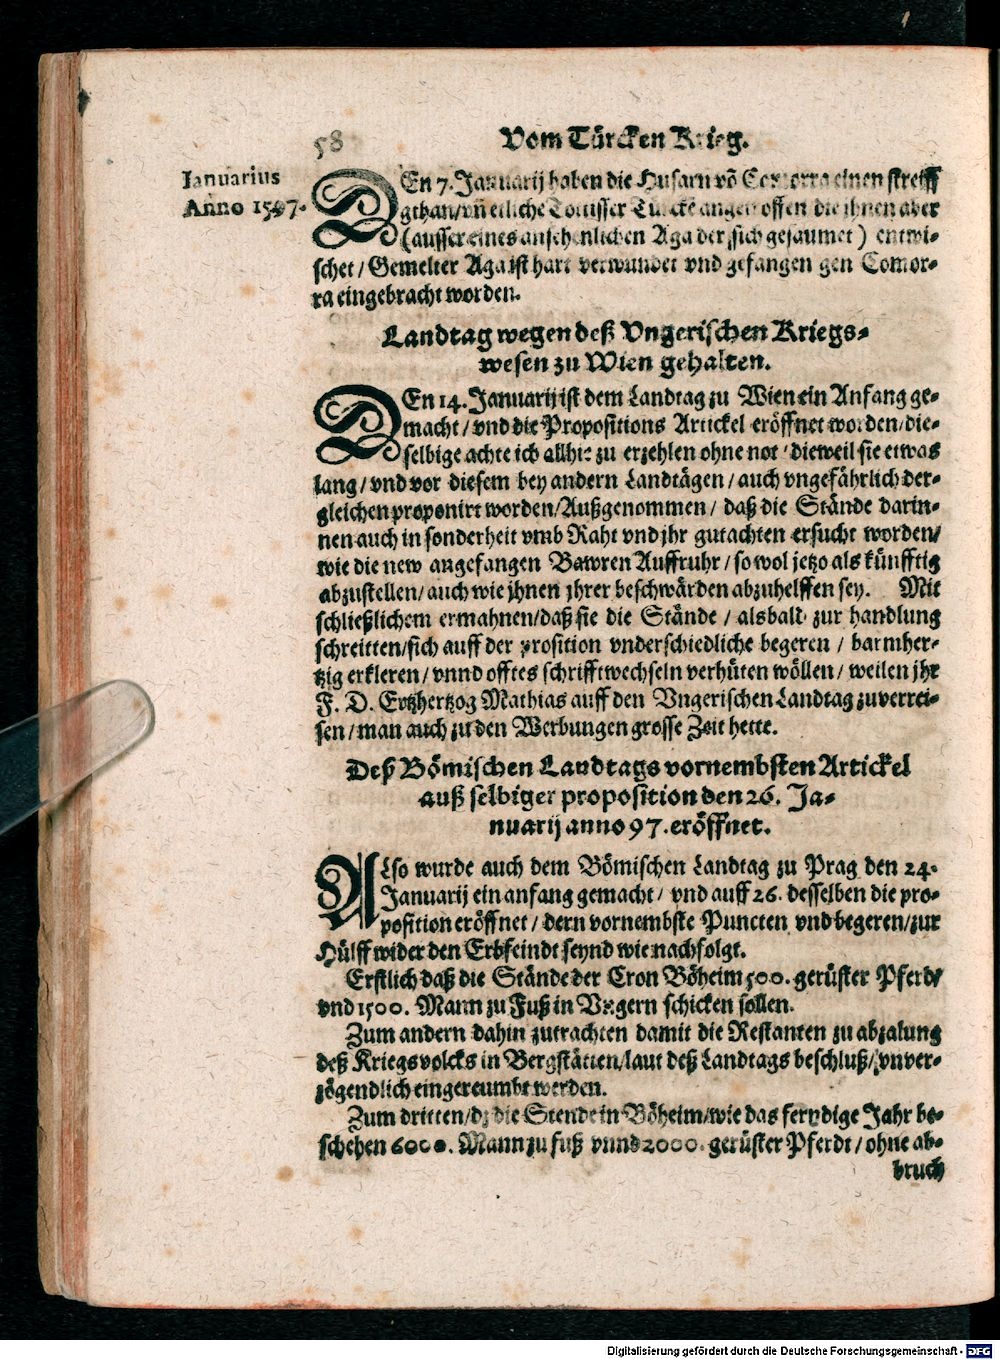 58
Vom Türcken Krieg.
Ianuarius
Anno 1597.
DEn 7. Januarij haben die Husarn võ Comorra einen streiff
gthan/vñ etliche Totisser Türckẽ angetroffen die jhnen aber
(ausser eines ansehenlichen Aga der sich gesaumet) entwi-
schet/Gemelter Aga ist hart verwundet vnd gefangen gen Comor-
ra eingebracht worden.
Landtag wegen deß Vngerischen Kriegs-
wesen zu Wien gehalten.
DEn 14. Januarij ist dem Landtag zu Wien ein Anfang ge-
macht/vnd die Propositions Artickel eröffnet worden/die-
selbige achte ich allhie zu erzehlen ohne not/dieweil sie etwas
lang/vnd vor diesem bey andern Landtägen/auch vngefährlich der-
gleichen proponirt worden/Außgenommen/daß die Stände darin-
nen auch in sonderheit vmb Raht vnd jhr gutachten ersucht worden/
wie die new angefangen Bawren Auffruhr/so wol jetzo als künfftig
abzustellen/auch wie jhnen jhrer beschwärden abzuhelffen sey. Mit
schließlichem ermahnen/daß sie die Stände/alsbald zur handlung
schreitten/sich auff der prosition vnderschiedliche begeren/barmher-
tzig erkleren/vnnd offtes schrifftwechseln verhüten wöllen/weilen jhr
F. D. Ertzhertzog Mathias auff den Vngerischen Landtag zuverrei-
sen/man auch zu den Werbungen grosse Zeit hette.
Deß Bömischen Landtags vornembsten Artickel
auß selbiger proposition den 26. Ja-
nuarij anno 97. eröffnet.
ALso wurde auch dem Bömischen Landtag zu Prag den 24.
Januarij ein anfang gemacht/vnd auff 26. desselben die pro-
position eröffnet/dern vornembste Puncten vnd begeren/zur
Hülff wider den Erbfeindt seynd wie nachfolgt.
Erstlich daß die Stände der Cron Böheim 500. gerüster Pferd/
vnd 1500. Mann zu Fuß in Vngern schicken sollen.
Zum andern dahin zutrachten damit die Restanten zu abzalung
deß Kriegsvolcks in Bergstätten/laut deß Landtags beschluß/vnver-
zögendlich eingereumbt werden.
Zum dritten/dz die Stende in Böheim/wie das ferndige Jahr be-
schehen 6000. Mann zu fuß vnnd 2000. gerüster Pferdt/ohne ab-
bruch
Digitalisierung gefördert durch die Deutsche Forschungsgemeinschaft - DFG